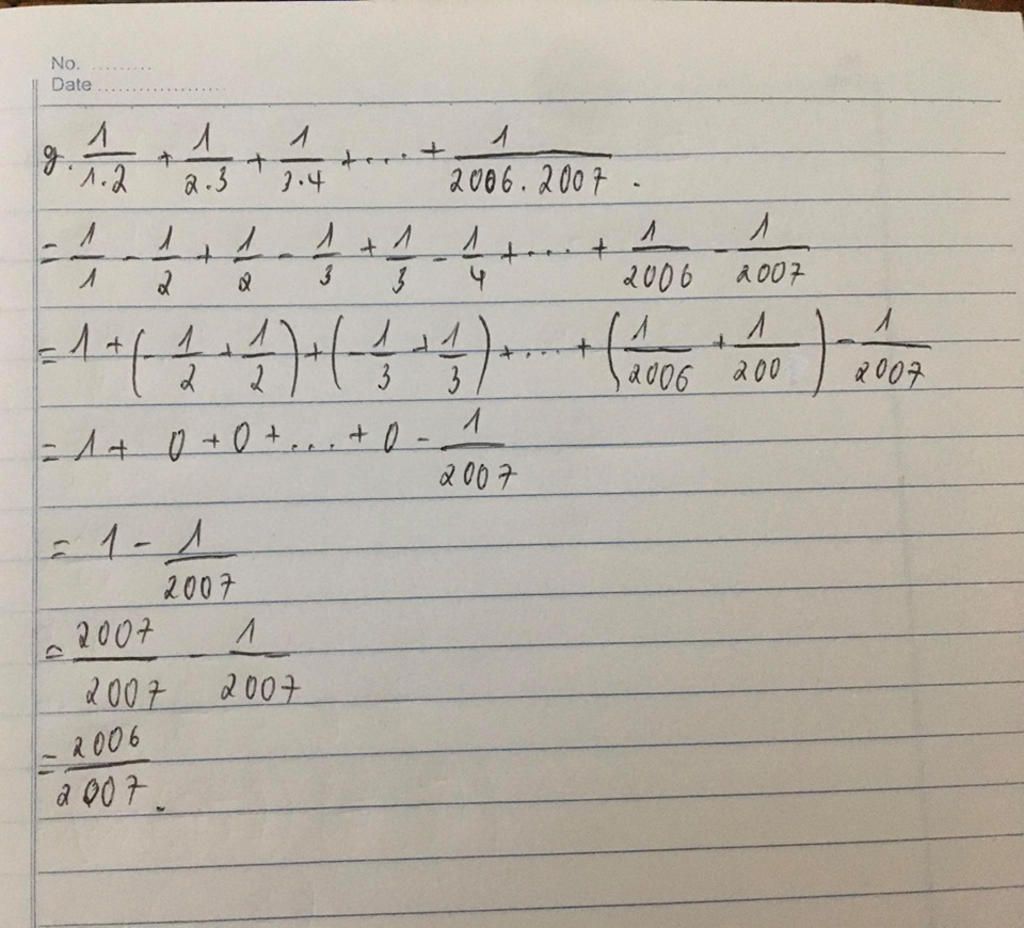 No. .........
Date ..................
g. 1/1.2 + 1/2.3 + 1/3.4 + .... + 1/2006.2007 .
= 1/1 - 1/2 + 1/2 - 1/3 + 1/3 - 1/4 + .... + 1/2006 - 1/2007
= 1 + (- 1/2 + 1/2) + (- 1/3 + 1/3) + .... + (1/2006 + 1/200) - 1/2007
= 1 + 0 + 0 + .... + 0 - 1/2007
= 1 - 1/2007
= 2007/2007 - 1/2007
= 2006/2007 .